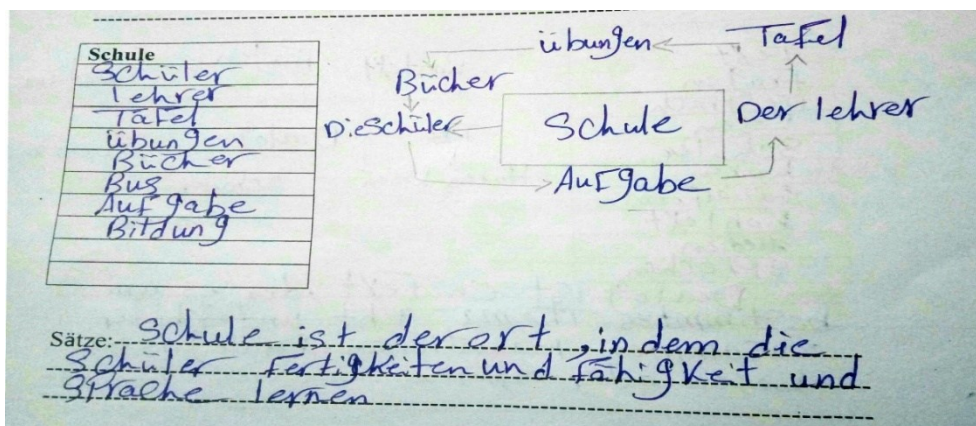 Schule
Schüler
lehrer
Tafel
übungen
Bücher
Bus
Aufgabe
Bildung
übungen Tafel
Bücher
Die schüler Schule Der lehrer
Aufgabe
Sätze: Schule ist der ort, in dem die
Schüler Fertigkeiten und Fähigkeit und
Sprache lernen